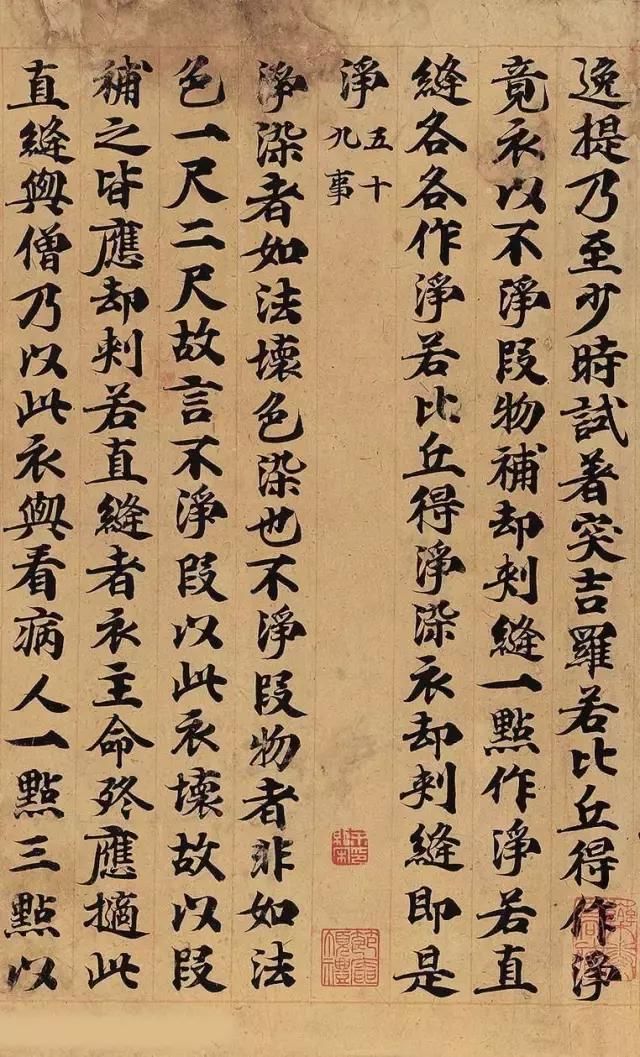 逸提乃至少時試著突吉羅若比丘得作淨
竟衣以不淨段物補却刾縫一點作淨若直
縫各各作淨若比丘得淨染衣却刾縫即是
淨五十九事
淨染者如法壞色染也不淨段物者非如法
色一尺二尺故言不淨段以此衣壞故以段
補之皆應却刾若直縫者衣主命終應擿此
直縫與僧乃以此衣與看病人一點三點以